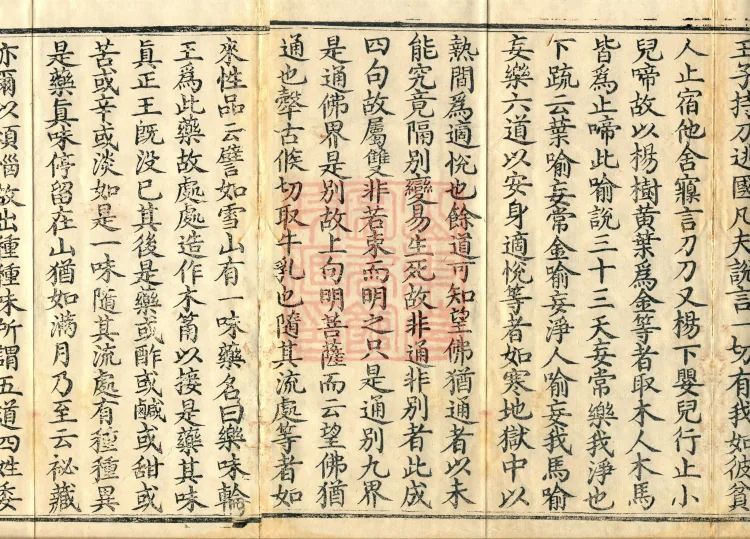 王子持刀逃國凡夫說言一切有我如彼貧
人止宿他舍寱言刀刀又楊下嬰兒行止小
兒啼故以楊樹黃葉爲金等者取木人木馬
皆爲止啼此喻說三十三天妄常樂我淨也
下疏云葉喻妄常金喻妄淨人喻妄我馬喻
妄樂六道以安身適悅等者如寒地獄中以
熱間爲適悅也餘道可知望佛猶通者以未
能究竟隔別變易生死故非通非別者此成
四句故屬雙非若束而明之只是通別九界
是通佛界是別故上句明菩薩而云望佛猶
通也聲古候切取牛乳也隨其流處等者如
來性品云譬如雪山有一味藥名曰樂味輪
王爲此藥故處處造作木筩以接是藥其味
眞正王旣沒已其後是藥或酢或鹹或甜或
苦或辛或淡如是一味隨其流處有種種異
是藥眞味停留在山猶如滿月乃至云祕藏
亦爾以煩惱故出種種味所謂五道四姓委